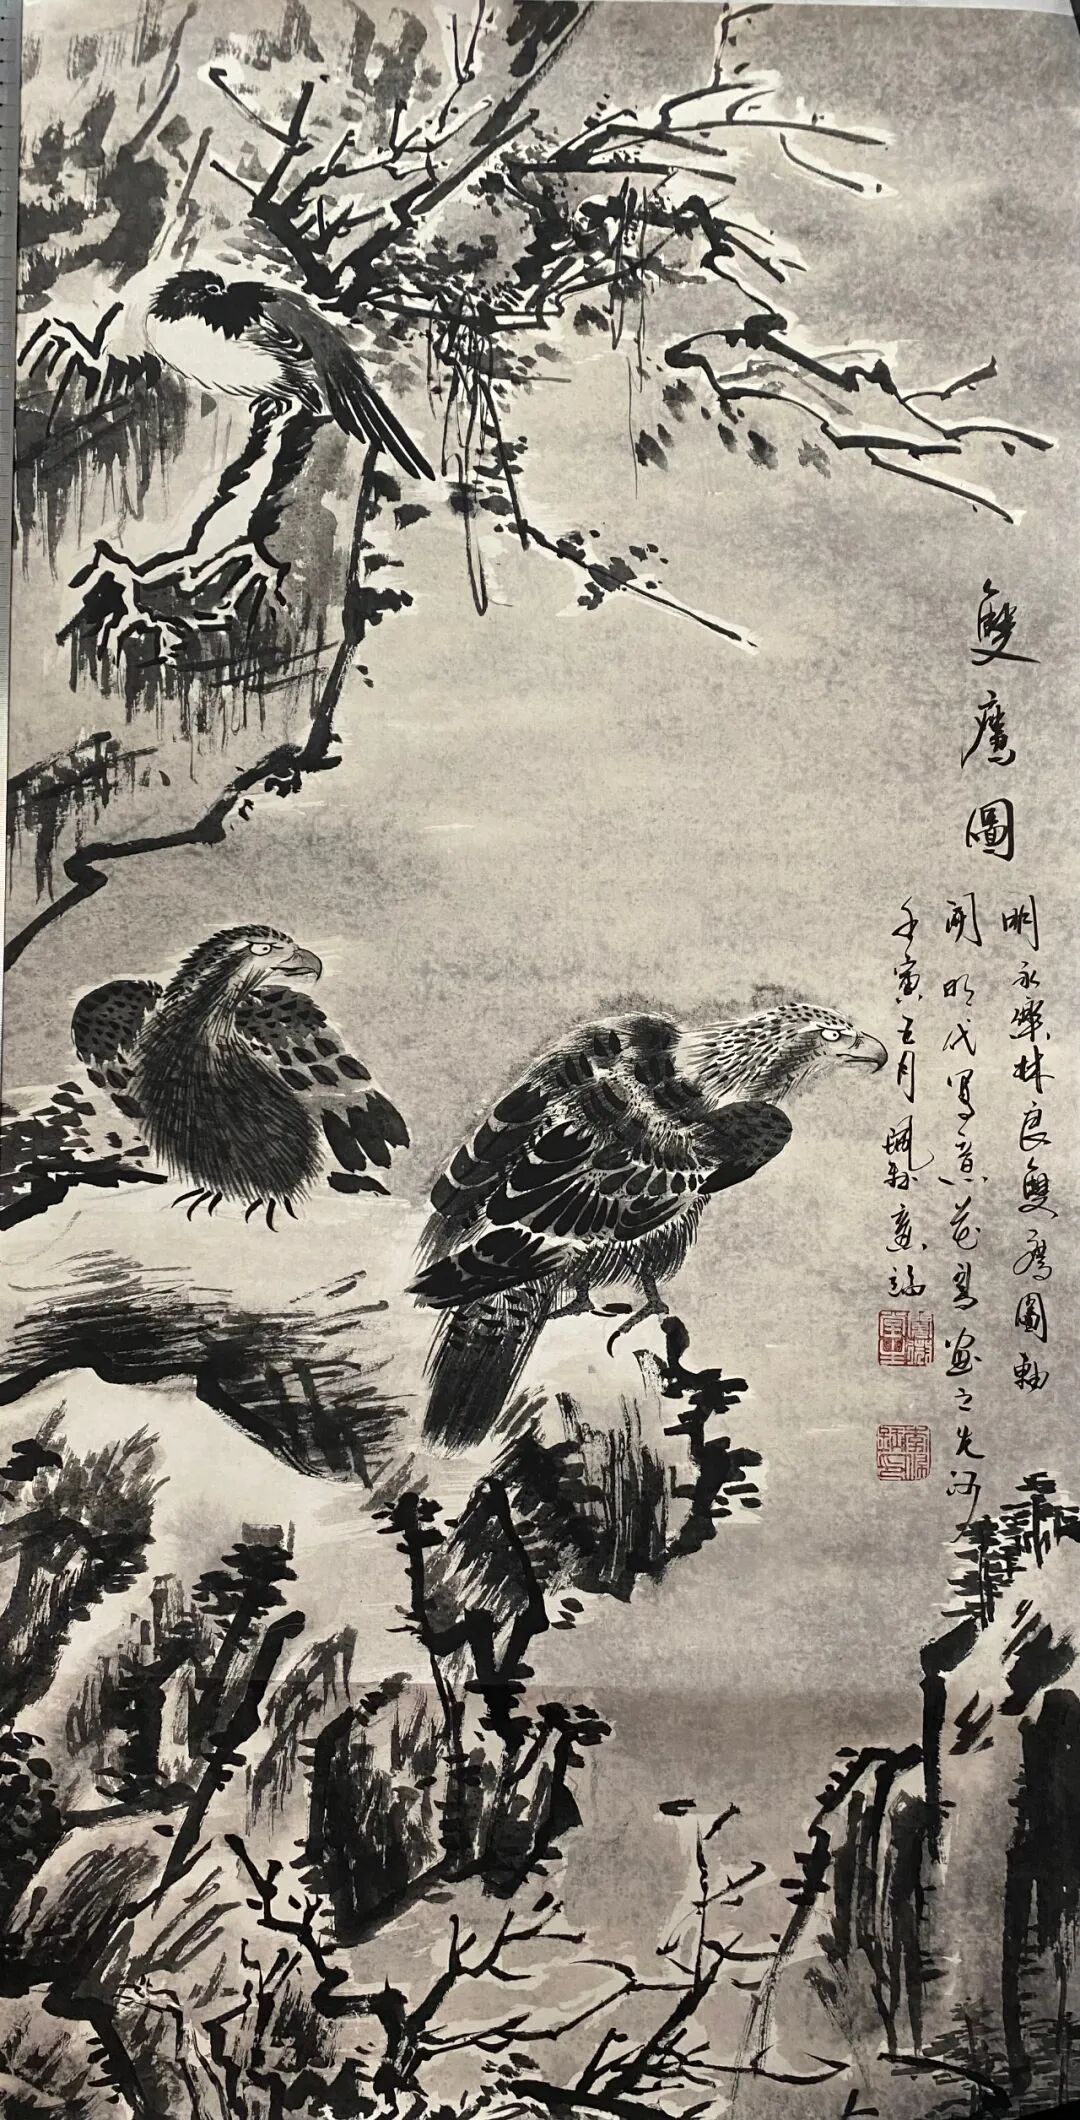 雙鷹圖
明永樂林良雙鷹圖軸
開明代寫意花鳥画之先河
壬寅五月